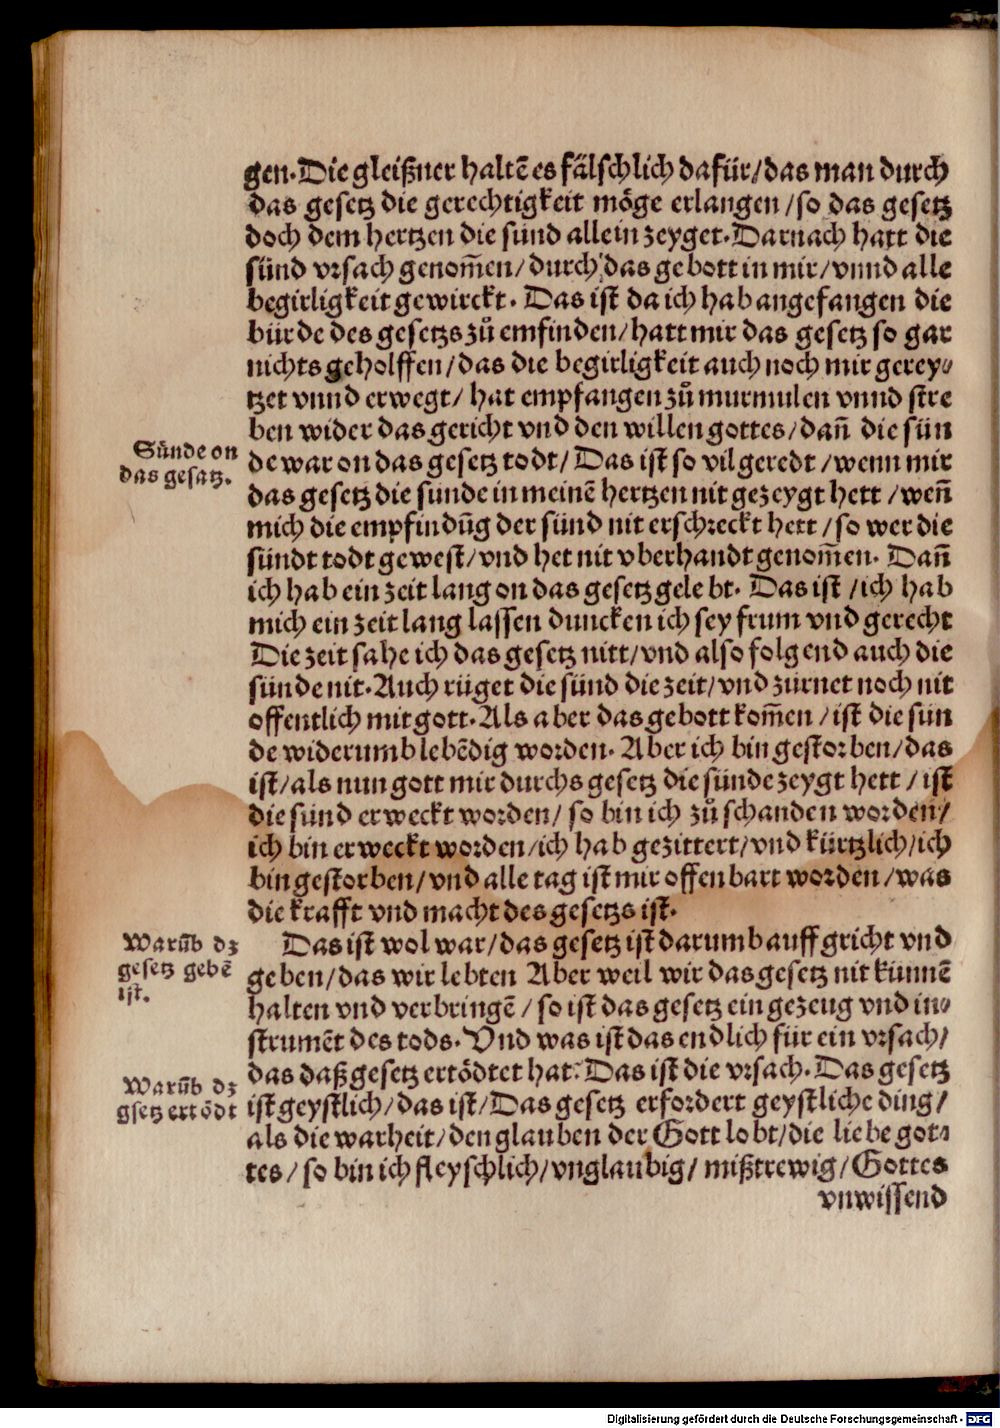 gen. Die gleißner haltē es fälschlich dafür/das man durch
das gesetz die gerechtigkeit möge erlangen/so das gesetz
doch dem hertzen die sünd allein zeyget. Darnach hatt die
sünd vrsach genom̄en/durch das gebott in mir/vnnd alle
begirligkeit gewirckt. Das ist da ich hab angefangen die
bürde des gesetzs zů emfinden/hatt mir das gesetz so gar
nichts geholffen/das die begirligkeit auch noch mir gerey⸗
tzet vnnd erwegt/ hat empfangen zů murmulen vnnd stre
ben wider das gericht vnd den willen gottes/dañ die sün
Sünde on
das gesatz.
de war on das gesetz todt/ Das ist so vil geredt/wenn mir
das gesetz die sünde in meinē hertzen nit gezeygt hett/weñ
mich die empfindūg der sünd nit erschreckt hett/so wer die
sündt todt gewest/vnd het nit vberhandt genom̄en. Dañ
ich hab ein zeit lang on das gesetz gelebt. Das ist/ich hab
mich ein zeit lang lassen duncken ich sey frum vnd gerecht
Die zeit sahe ich das gesetz nitt/vnd also folgend auch die
sünde nit. Auch rüget die sünd die zeit/vnd zürnet noch nit
offentlich mit gott. Als aber das gebott kom̄en/ist die sün
de widerumb lebēdig worden. Aber ich bin gestorben/das
ist/als nun gott mir durchs gesetz die sünde zeygt hett/ ist
die sünd erweckt worden/ so bin ich zů schanden worden/
ich bin erweckt worden/ich hab gezittert/vnd kürtzlich/ich
bin gestorben/vnd alle tag ist mir offenbart worden/was
die krafft vnd macht des gesetzs ist.
Warūb dz
gesetz gebē
ist.
Das ist wol war/das gesetz ist darumb auffgricht vnd
geben/das wir lebten Aber weil wir das gesetz nit künnē
halten vnd verbringē/so ist das gesetz ein gezeug vnd in⸗
strumēt des tods. Vnd was ist das endlich für ein vrsach/
das daß gesetz ertödtet hat? Das ist die vrsach. Das gesetz
Warūb dz
gsetz ertödt
ist geystlich/das ist/Das gesetz erfordert geystliche ding/
als die warheit/den glauben der Gott lobt/die liebe got⸗
tes/so bin ich fleyschlich/vnglaubig/ mißtrewig/Gottes
vnwissend
Digitalisierung gefördert durch die Deutsche Forschungsgemeinschaft - DFG